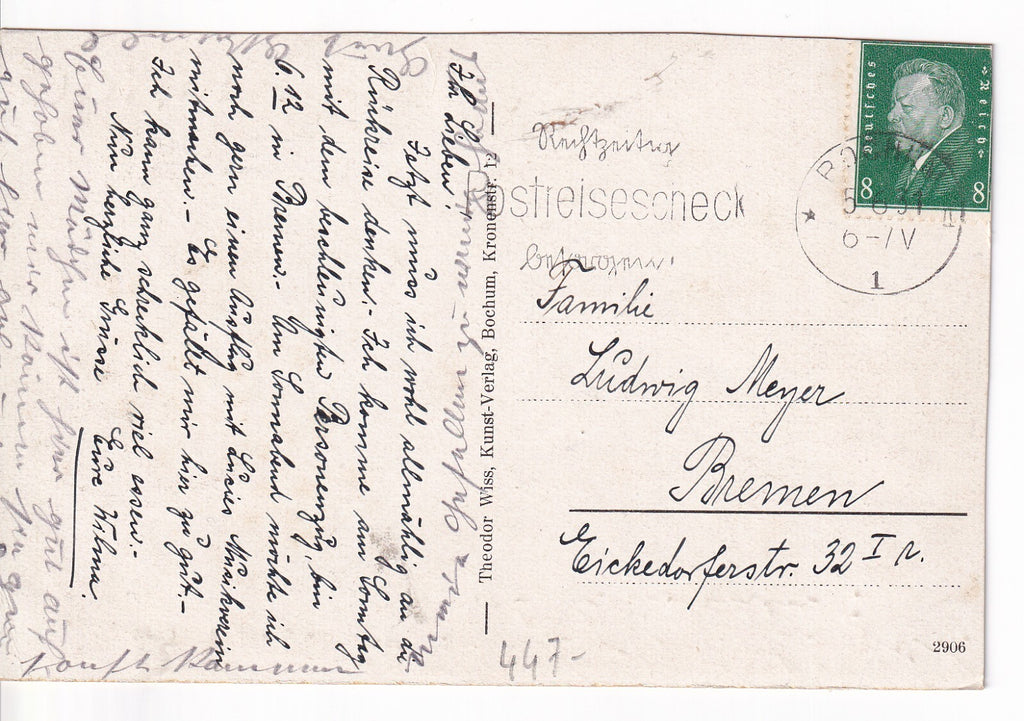 Ihr Lieben!
Jetzt muss ich wohl allmählig an die
Rückreise denken. - Ich komme am Sonntag
mit dem beschleunigten Personenzug, bin
6.12 in Bremen. - Am Sonnabend möchte ich
noch gern einen Ausflug mit Lucies Musikverein
mitmachen. - Es gefällt mir hier zu gut. -
Ich kann ganz schrecklich viel essen. -
Nun herzliche Grüsse
Eure Wilma.
Euer Mädchen ist hier gut auf
gehoben
Theodor Wiss, Kunst-Verlag, Bochum, Kronenstr. 12
Rechtzeitig
Postreisescheck
besorgen.
Deutsches Reich
8 8
6-7 V
1
Familie
Ludwig Meyer
Bremen
Eickedorferstr. 32 I r.
447-
2906